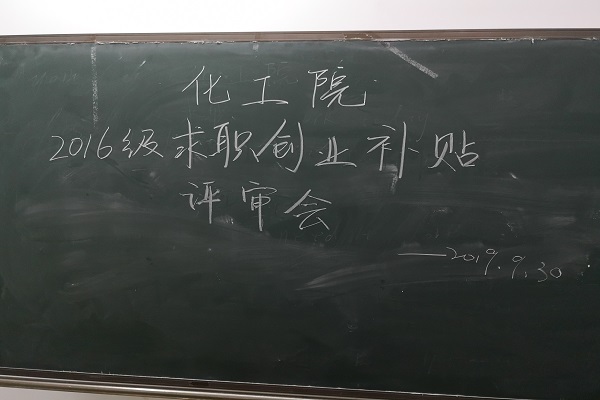 化工院
2016级求职创业补贴
评审会
——2019.9.30